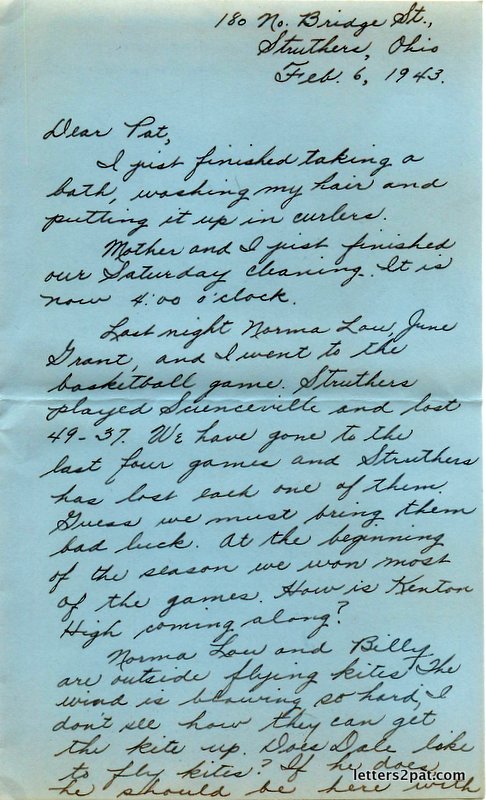 180 No. Bridge St.,
Struthers, Ohio
Feb. 6, 1943.
Dear Pat,
I just finished taking a
bath, washing my hair and
putting it up in curlers.
Mother and I just finished
our Saturday cleaning. It is
now 4:00 o'clock.
Last night Norma Lou, June
Grant, and I went to the
basketball game. Struthers
played Scienceville and lost
49-37. We have gone to the
last four games and Struthers
has lost each one of them.
Guess we must bring them
bad luck. At the beginning
of the season we won most
of the games. How is Kenton
High coming along?
Norma Lou and Billy
are outside flying kites. The
wind is blowing so hard, I
don't see how they can get
the kite up. Does Dale like
to fly kites? If he does
he should be here with
letters2pat.com